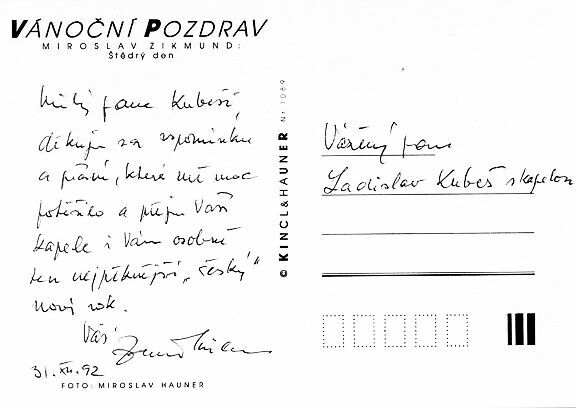 VÁNOČNÍ POZDRAV
MIROSLAV ZIKMUND:
Štědrý den
Milý pane Kubeši,
děkuji za vzpomínku
a přání, které mě moc
potěšilo a přeji Vaší
kapele i Vám osobně
ten nejpěknější „český"
nový rok.
Váš
31. XII. 92
FOTO: MIROSLAV HAUNER
© KINCL & HAUNER Nr 1089
Vážený pan
Ladislav Kubeš s kapelou